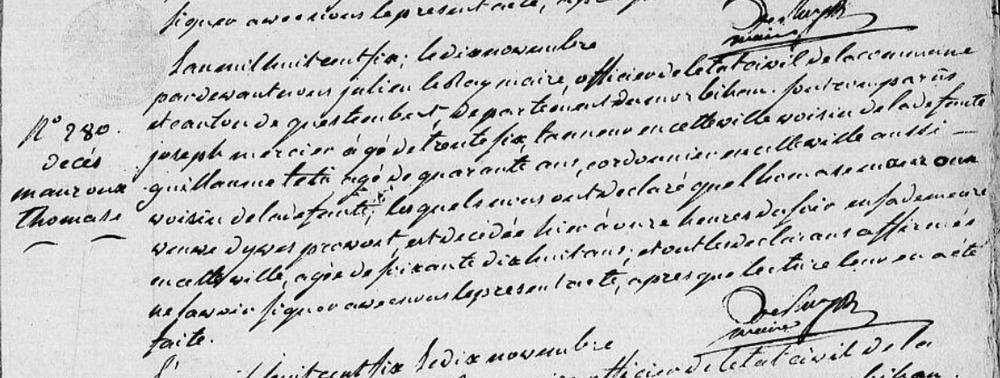 signer avec nous le present acte, après
L'an mil huit cent six; le dix novembre
pardevant nous julien le Ray maire, officier de l'etat civil de la commune
et canton de questembert, Departement du morbihan. sont comparüs
N° 280. joseph mercier agé de trente six, tanneur en cette ville voisin de la defunte
decés guillaume teta agé de quarante ans, cordonnier en cette ville aussi —
mauroux voisin de la defunte; lesquels nous ont declaré que thomase mauroux
thomase veuve d'yves provost, est decédée hier à onze heures du soir en sa demeure
en cette ville, agée de soixante dix huit ans; et ont les declarans affirmés
ne savoir signer avec nous le present acte, apres que lecture leur en a été
faite.
maire
L'an mil huit cent six le dix novembre
officier de l'etat civil de la